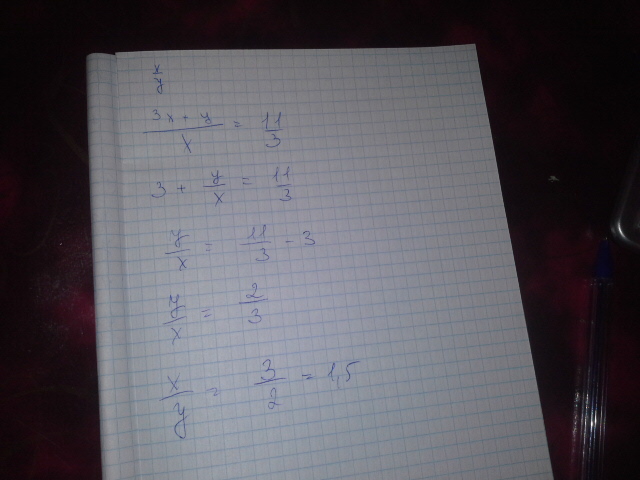 x/y
(3x + y)/x = 11/3
3 + y/x = 11/3
y/x = 11/3 - 3
y/x = 2/3
x/y = 3/2 = 1,5